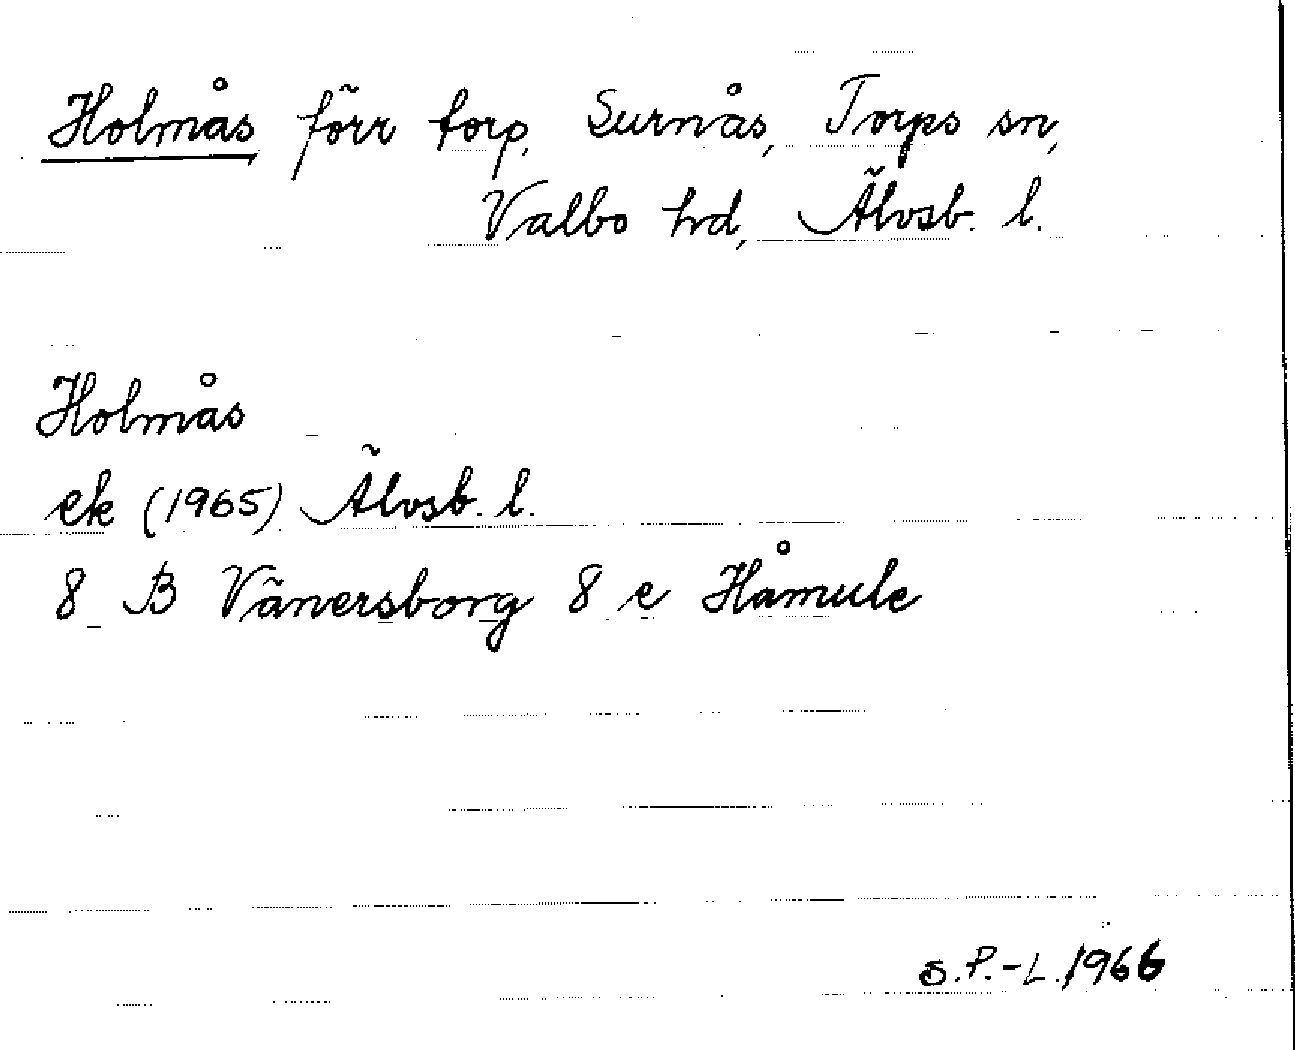 Holmås, förr torp, Surnås, Torps sn,
Valbo hd, Älvsb. l.
Holmås
ek (1965) Älvsb. l.
8 B Vänersborg 8 e Håmule
S.P.-L. 1966